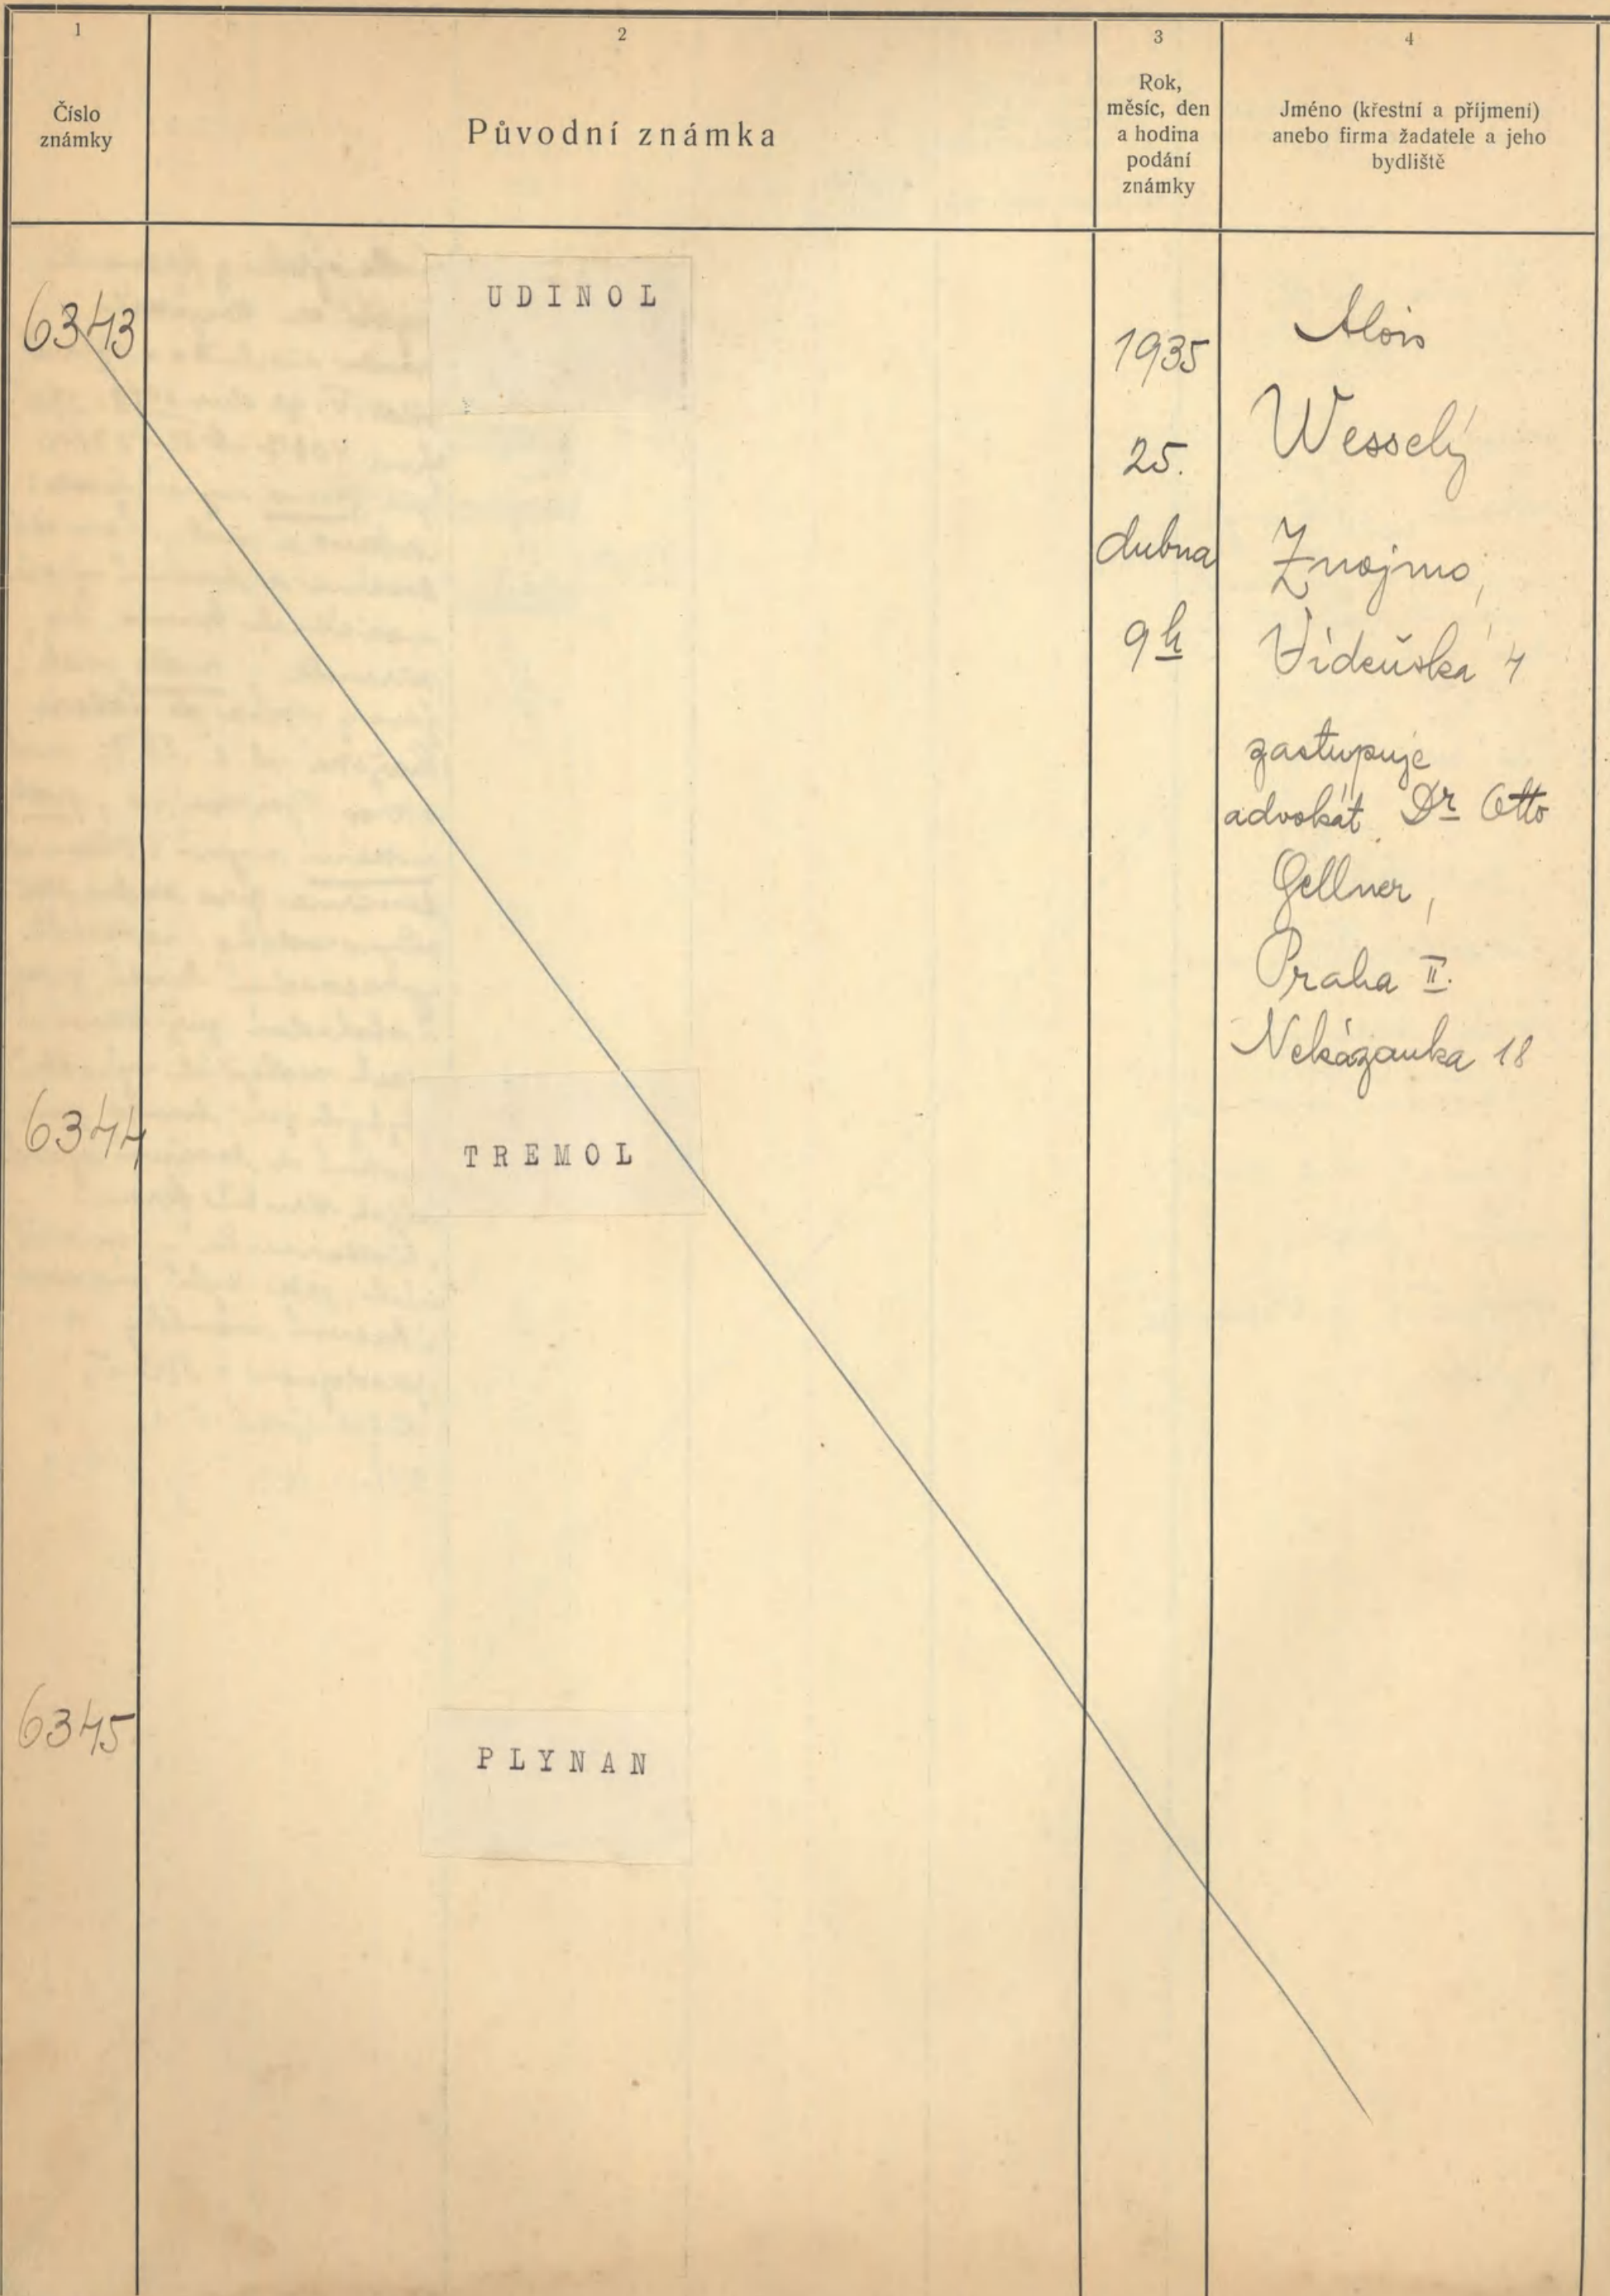 1
Číslo
známky
2
Původní známka
3
Rok,
měsíc, den
a hodina
podání
známky
4
Jméno (křestní a příjmení)
anebo firma žadatele a jeho
bydliště
6343
UDINOL
1935
25.
dubna
9 h
Alois
Wesselý
Znojmo,
Vídeňská 4
zastupuje
advokát Dr Otto
Gellner,
Praha II.
Nekázanka 18
6344
TREMOL
6345
PLYNAN